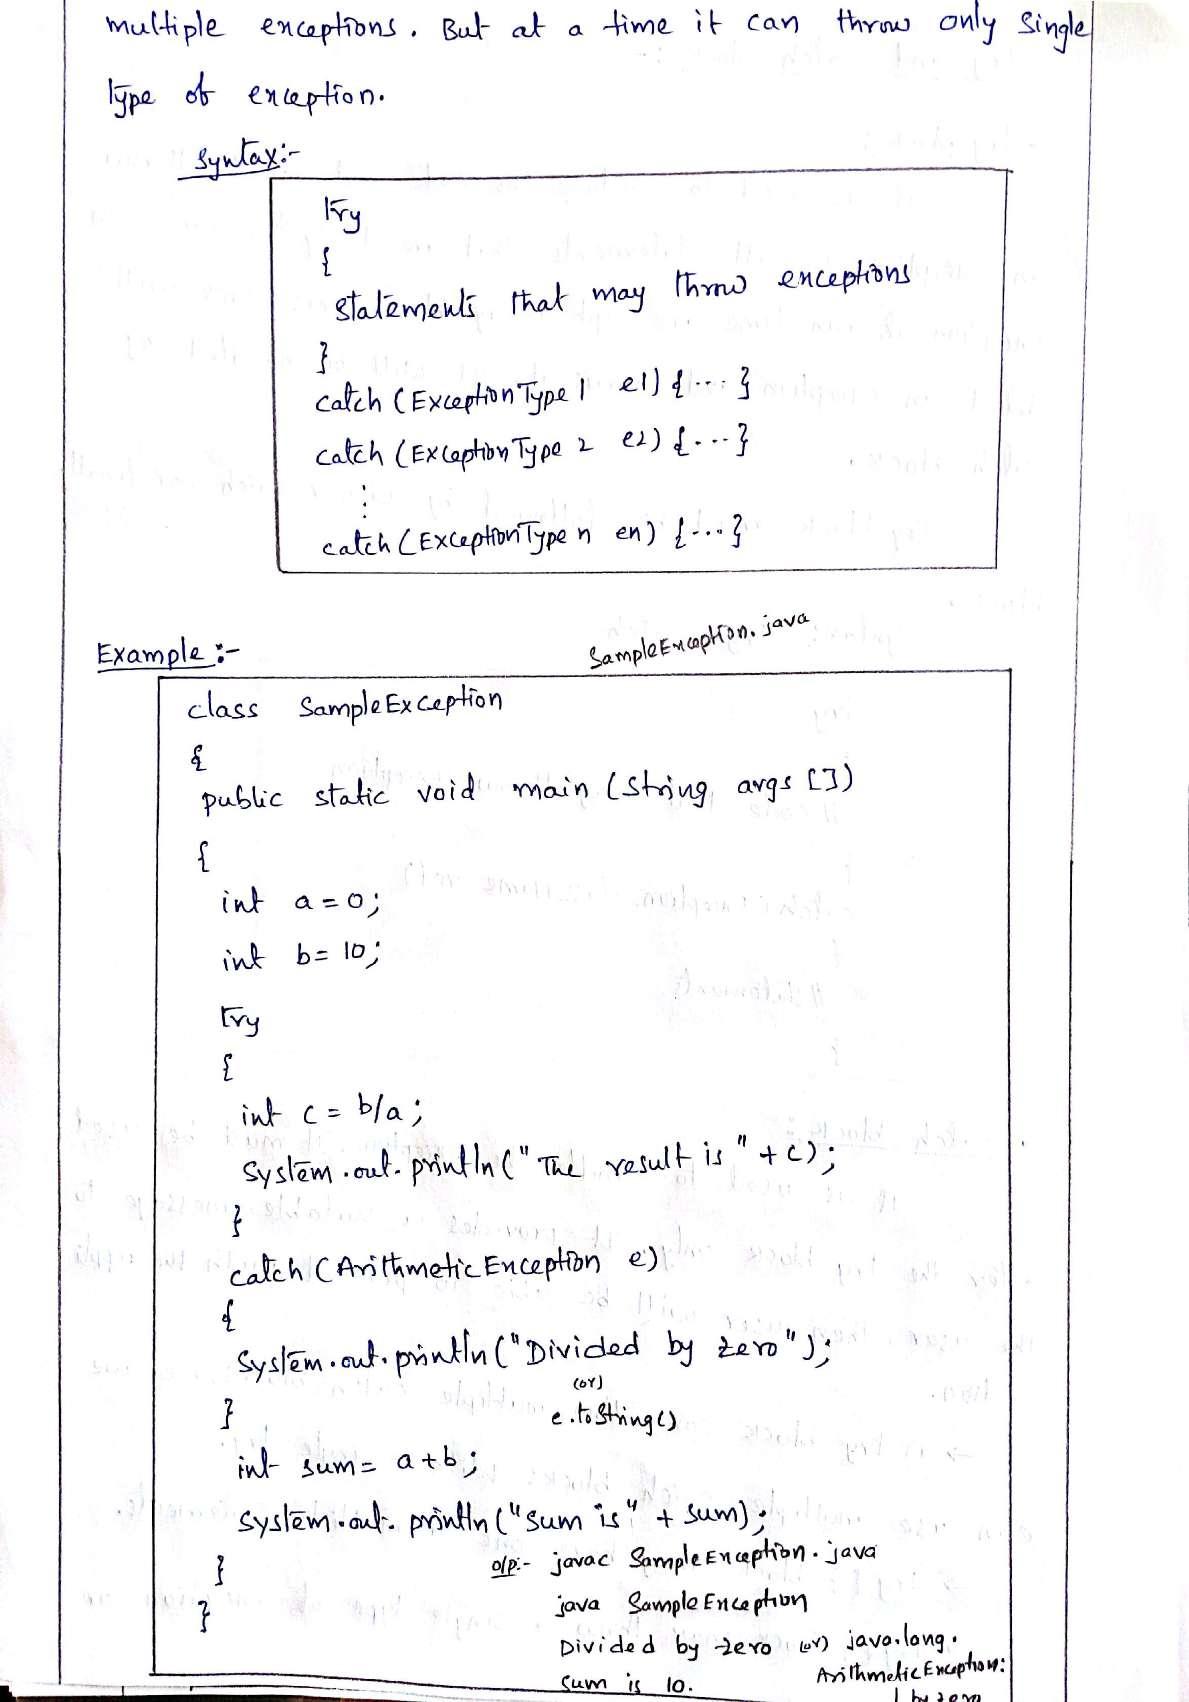 multiple exceptions. But at a time it can throw only Single
type of exception.
Syntax:-
try
{
statements that may throw exceptions
}
catch (ExceptionType 1 e1) {...}
catch (ExceptionType 2 e2) {...}
⋮
catch (ExceptionType n en) {...}
Example:-
SampleException.java
class SampleException
{
public static void main (String args [])
{
int a = 0;
int b = 10;
try
{
int c = b/a;
System.out.println("The result is " + c);
}
catch (ArithmeticException e)
{
System.out.println("Divided by zero");
(or)
e.toString()
}
int sum = a + b;
System.out.println("sum is" + sum);
}
o/p:- javac SampleException.java
}
java SampleException
Divided by zero (or) java.lang.
ArithmeticException:
sum is 10.
/ by zero